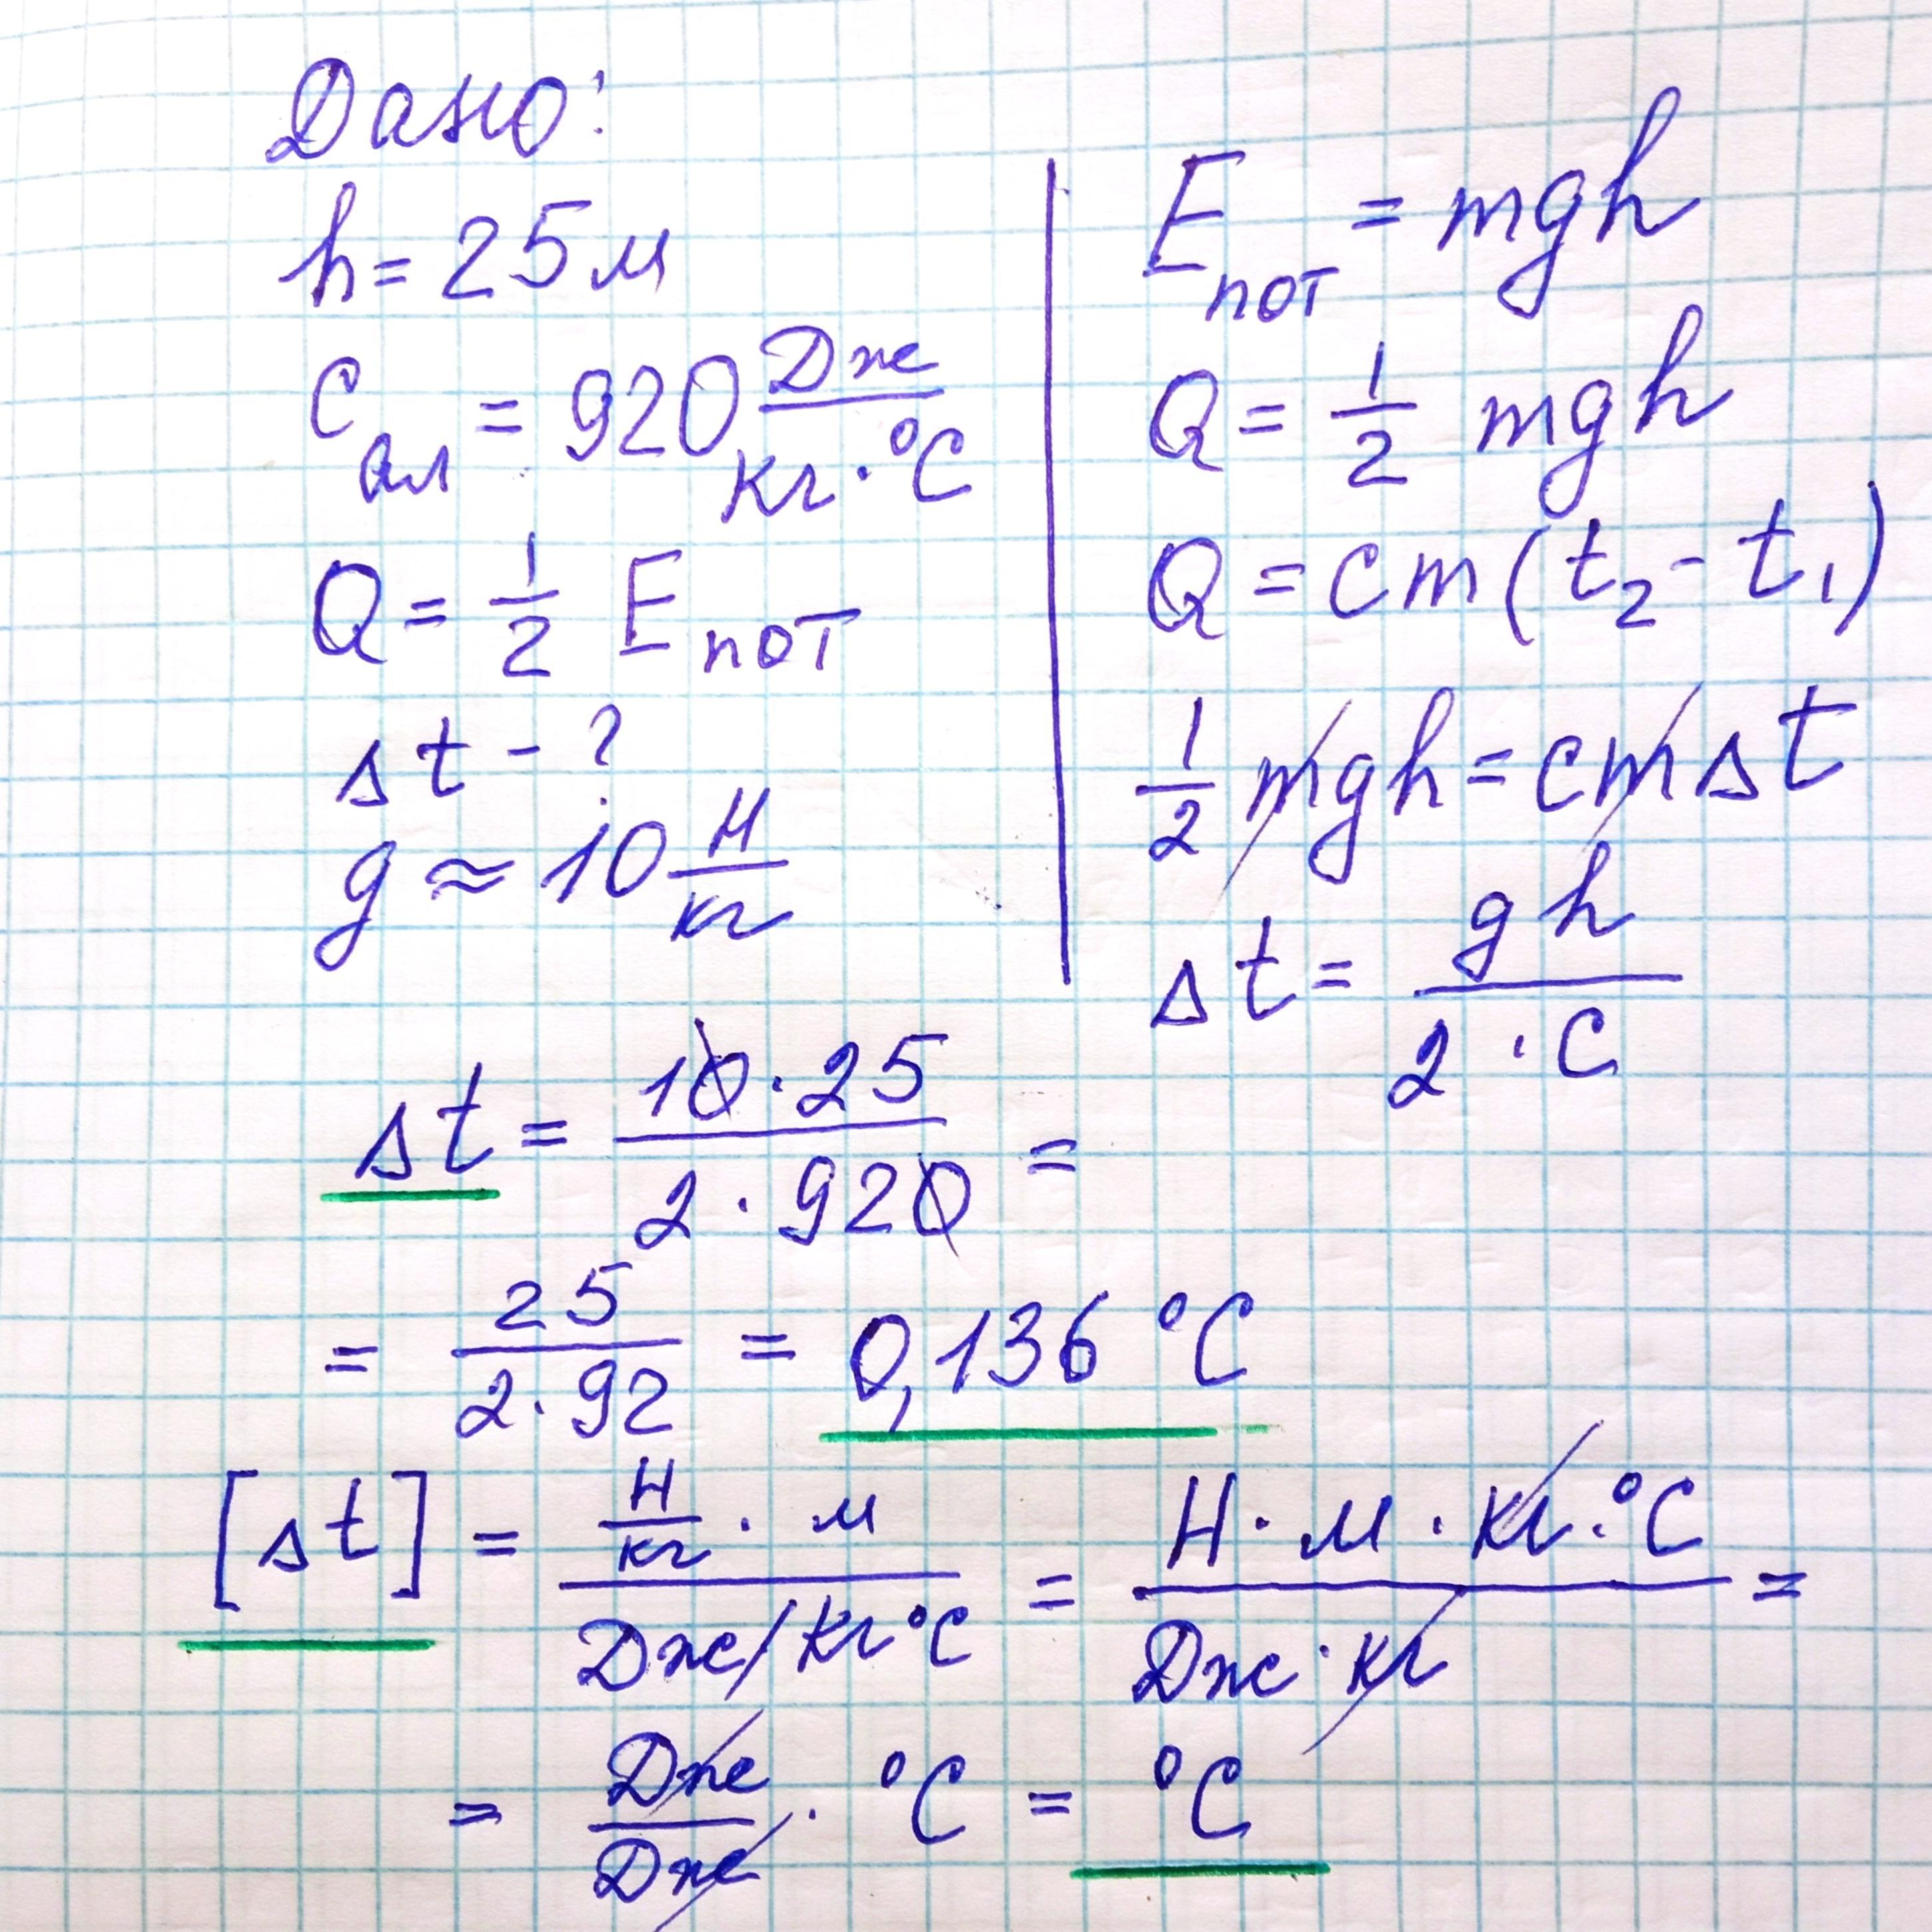 Дано:
h = 25 м
C ал = 920 Дж / кг · °C
Q = 1/2 E пот
Δt - ?
g ≈ 10 Н/кг
E пот = mgh
Q = 1/2 mgh
Q = cm(t₂ - t₁)
1/2 mgh = cmΔt
Δt = gh / 2 · C
Δt = 10 · 25 / 2 · 920 =
= 25 / 2 · 92 = 0,136 °C
[Δt] = Н/кг · м / Дж/кг °C = Н · м · кг · °C / Дж · кг =
= Дж / Дж · °C = °C